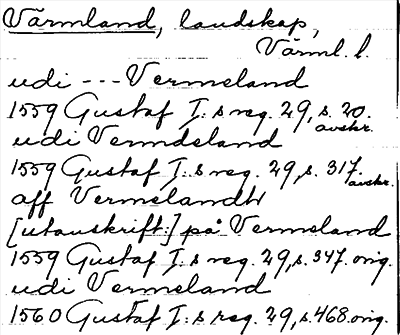 Värmland, landskap,
Värml. l.
udi --- Vermeland
1559 Gustaf I:s reg. 29, s. 20. avskr.
udi Vermdeland
1559 Gustaf I:s reg. 29, s. 317. avskr.
aff Vermelandh
[utanskrift:] på Vermeland
1559 Gustaf I:s reg. 29, s. 347. orig.
udi Vermeland
1560 Gustaf I:s reg. 29, s. 468. orig.